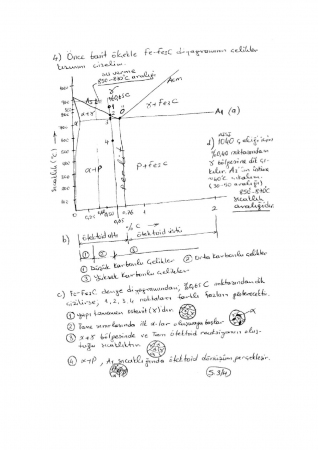 4) Önce basit ölçekle Fe-Fe3C diyagramının çelikler
kısmını çizelim.
ısıtma
850-870°C aralığı
%0,45C
A3
Acm
γ+Fe3C
α+γ
A1 (a)
Sıcaklık (°C)
α+P
P+Fe3C
Perlit
0
0,25
1
2
%C →
d) 1040 çeliği için
%0,40 noktasından
γ bölgesine dik çı-
kılır. A3'ün üstüne
(30-50 aralığı)
850-870°C
sıcaklık
aralığıdır.
b) ötektoid altı
ötektoid üstü
① ② ③
① Düşük karbonlu çelikler ② Orta karbonlu çelikler
③ Yüksek karbonlu çelikler
c) Fe-Fe3C denge diyagramından; %0,45 C noktasından dik
çizilirse, 1, 2, 3, 4 noktaları farklı fazları gösterecektir.
① yapı tamamen östenit (γ)dır.
② Tane sınırlarında ilk α-lar oluşmaya başlar
③ α+γ bölgesinde ve tam ötektoid reaksiyonun oluş-
tuğu sıcaklıktır.
④ α+P, A1 sıcaklığında ötektoid dönüşüm gerçekleşir.